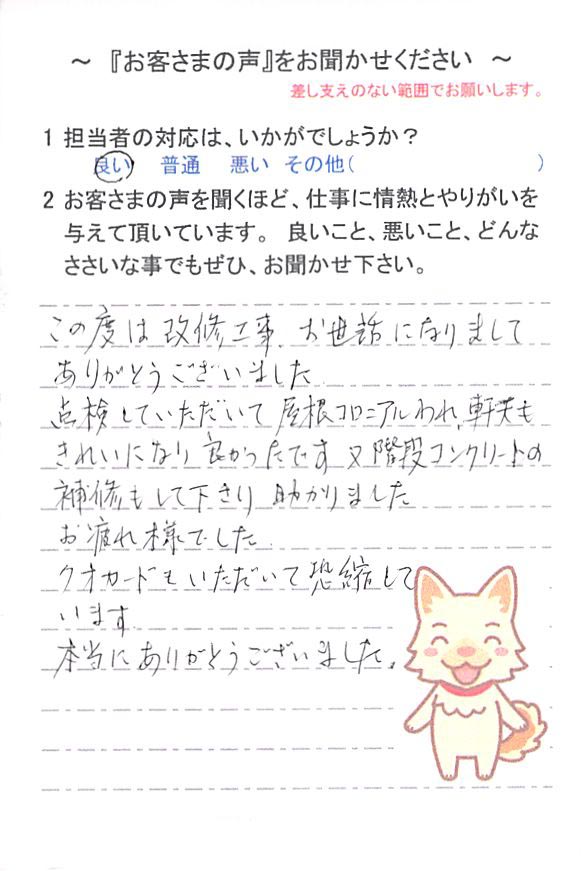 ～ 『お客さまの声』をお聞かせください ～
差し支えのない範囲でお願いします。
1 担当者の対応は、いかがでしょうか？
良い 普通 悪い その他( )
2 お客さまの声を聞くほど、仕事に情熱とやりがいを
与えて頂いています。 良いこと、悪いこと、どんな
ささいな事でもぜひ、お聞かせ下さい。
この度は改修工事、お世話になりまして
ありがとうございました
点検していただいて屋根コロニアルわれ、軒天も
きれいになり良かったです 又階段コンクリートの
補修もして下さり助かりました
お疲れ様でした
クオカードもいただいて恐縮して
います
本当にありがとうございました。